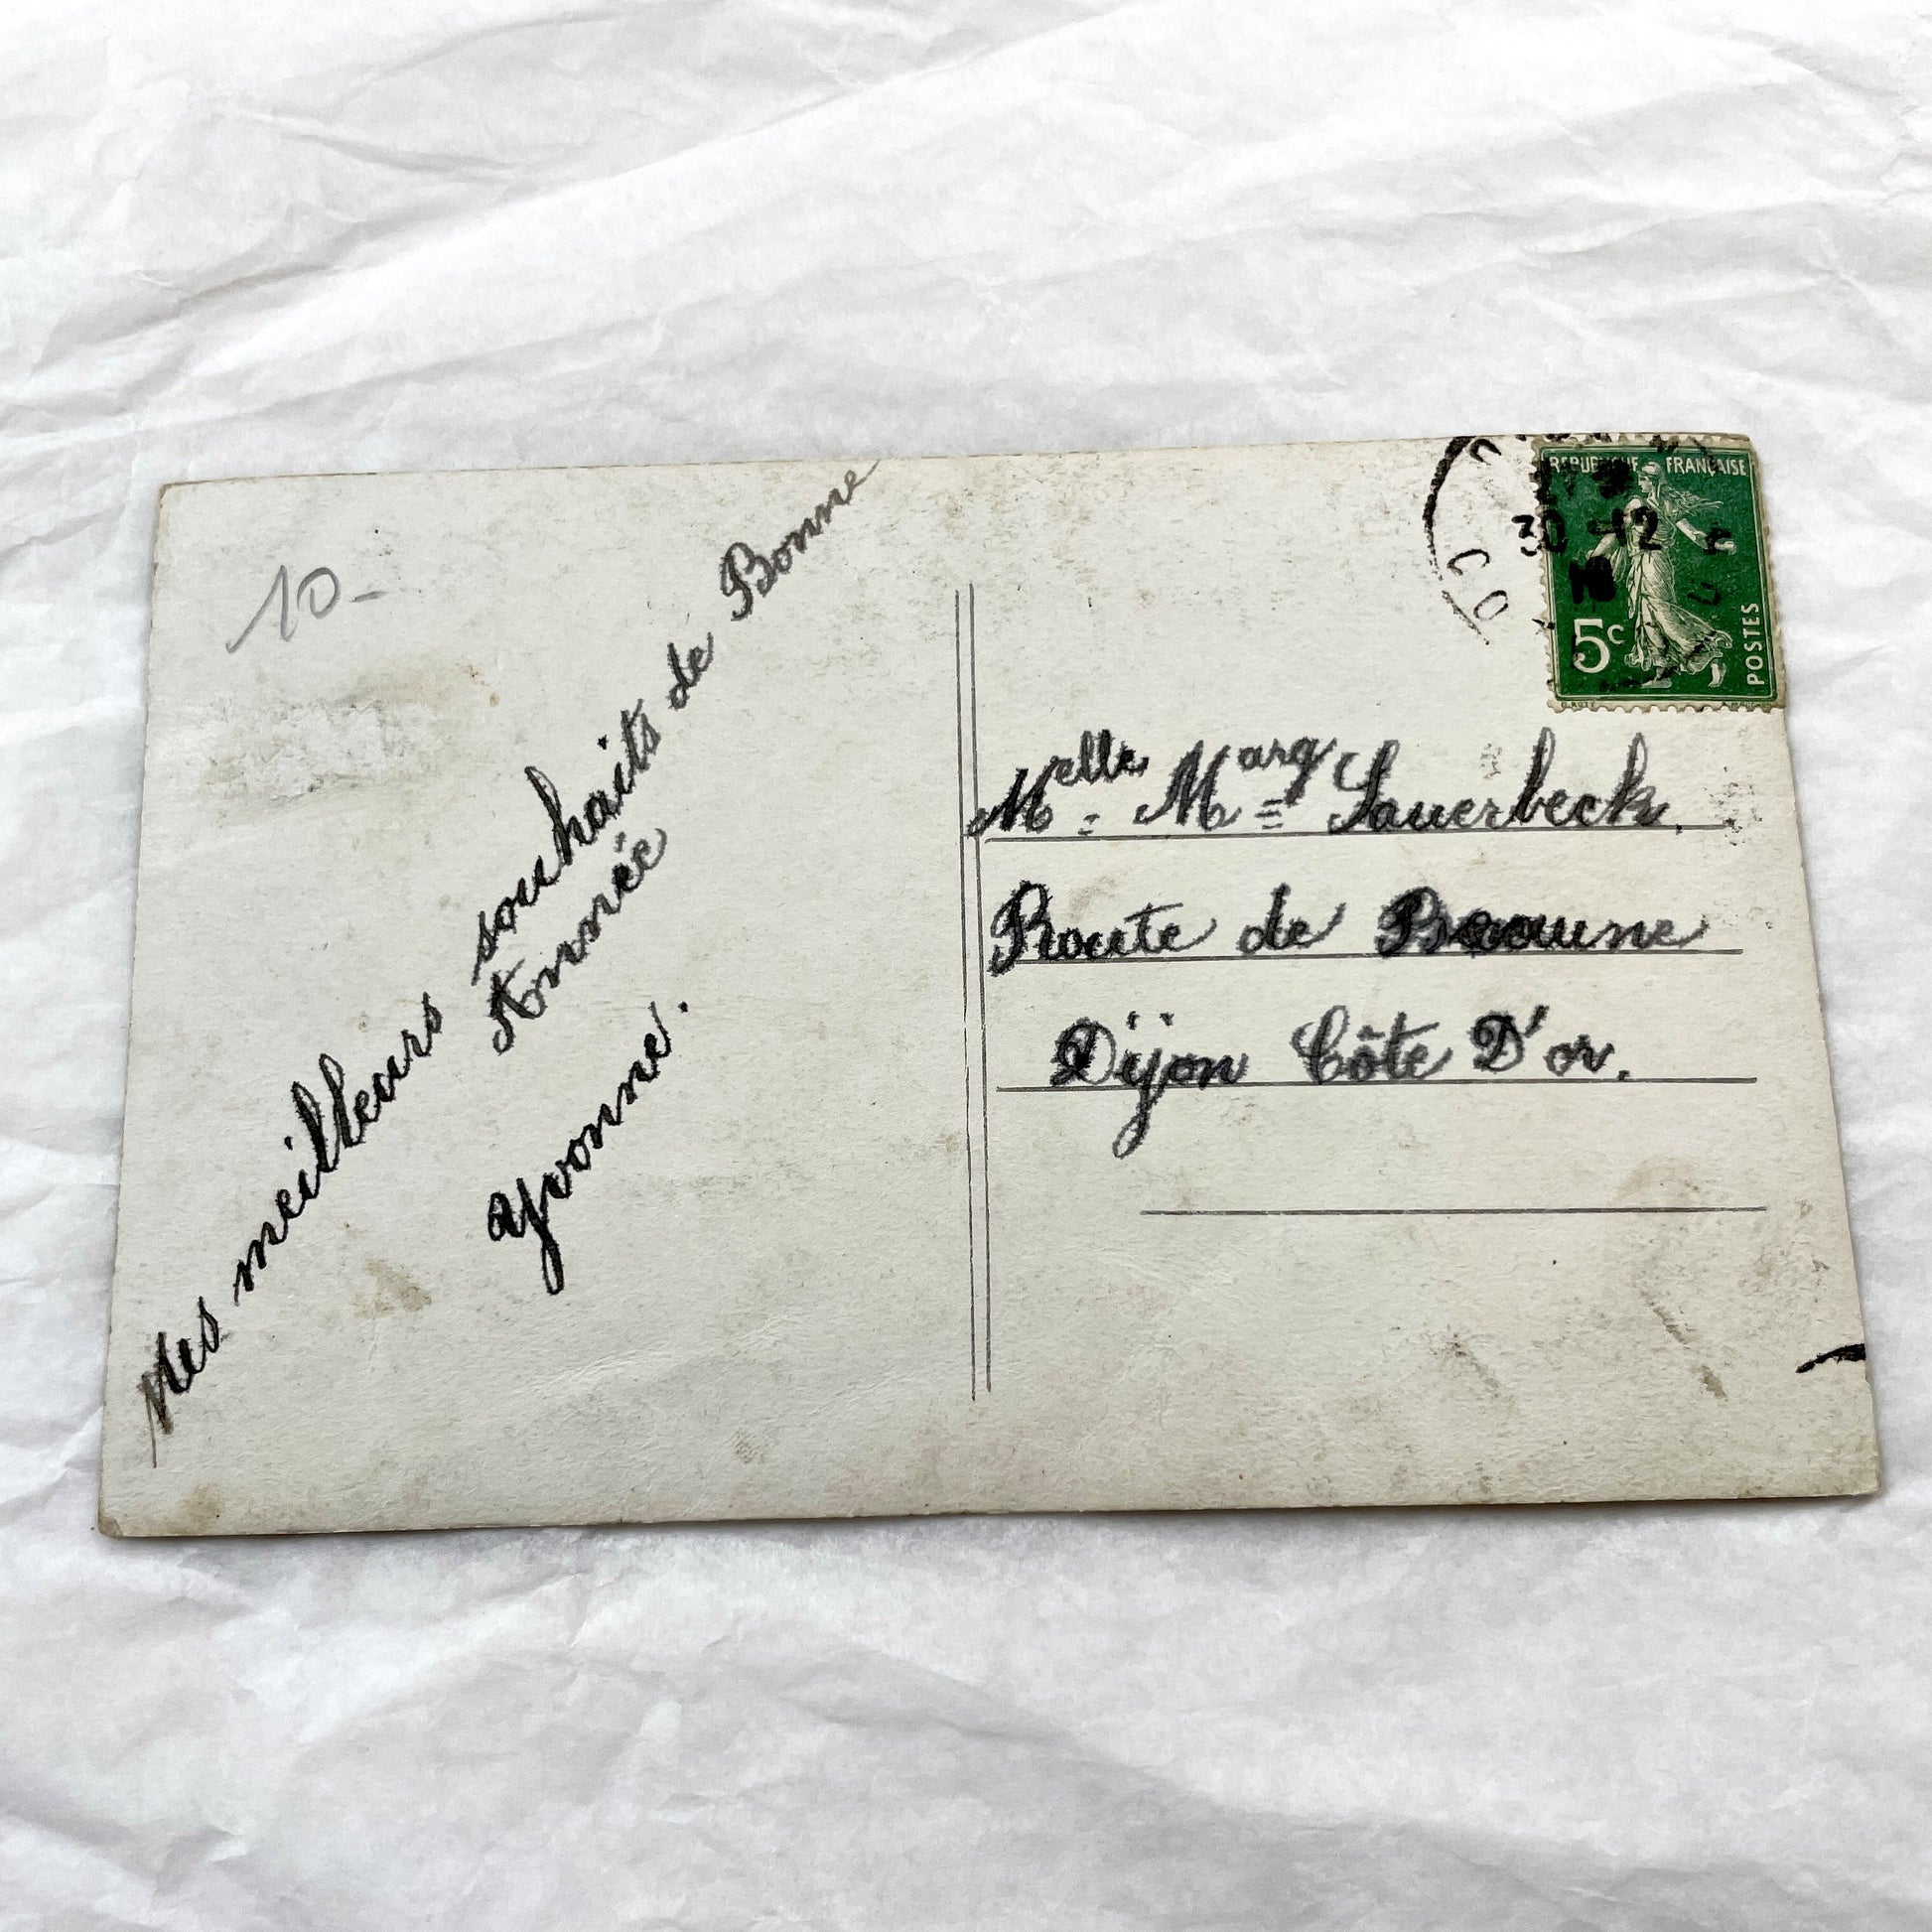 10-
Mes meilleurs souhaits de Bonne
Année
Yvonne.
REPUBLIQUE FRANÇAISE
30 -12
5c
POSTES
Melle Marg Sauerbeck.
Route de Beaune
Dijon Côte D'or.